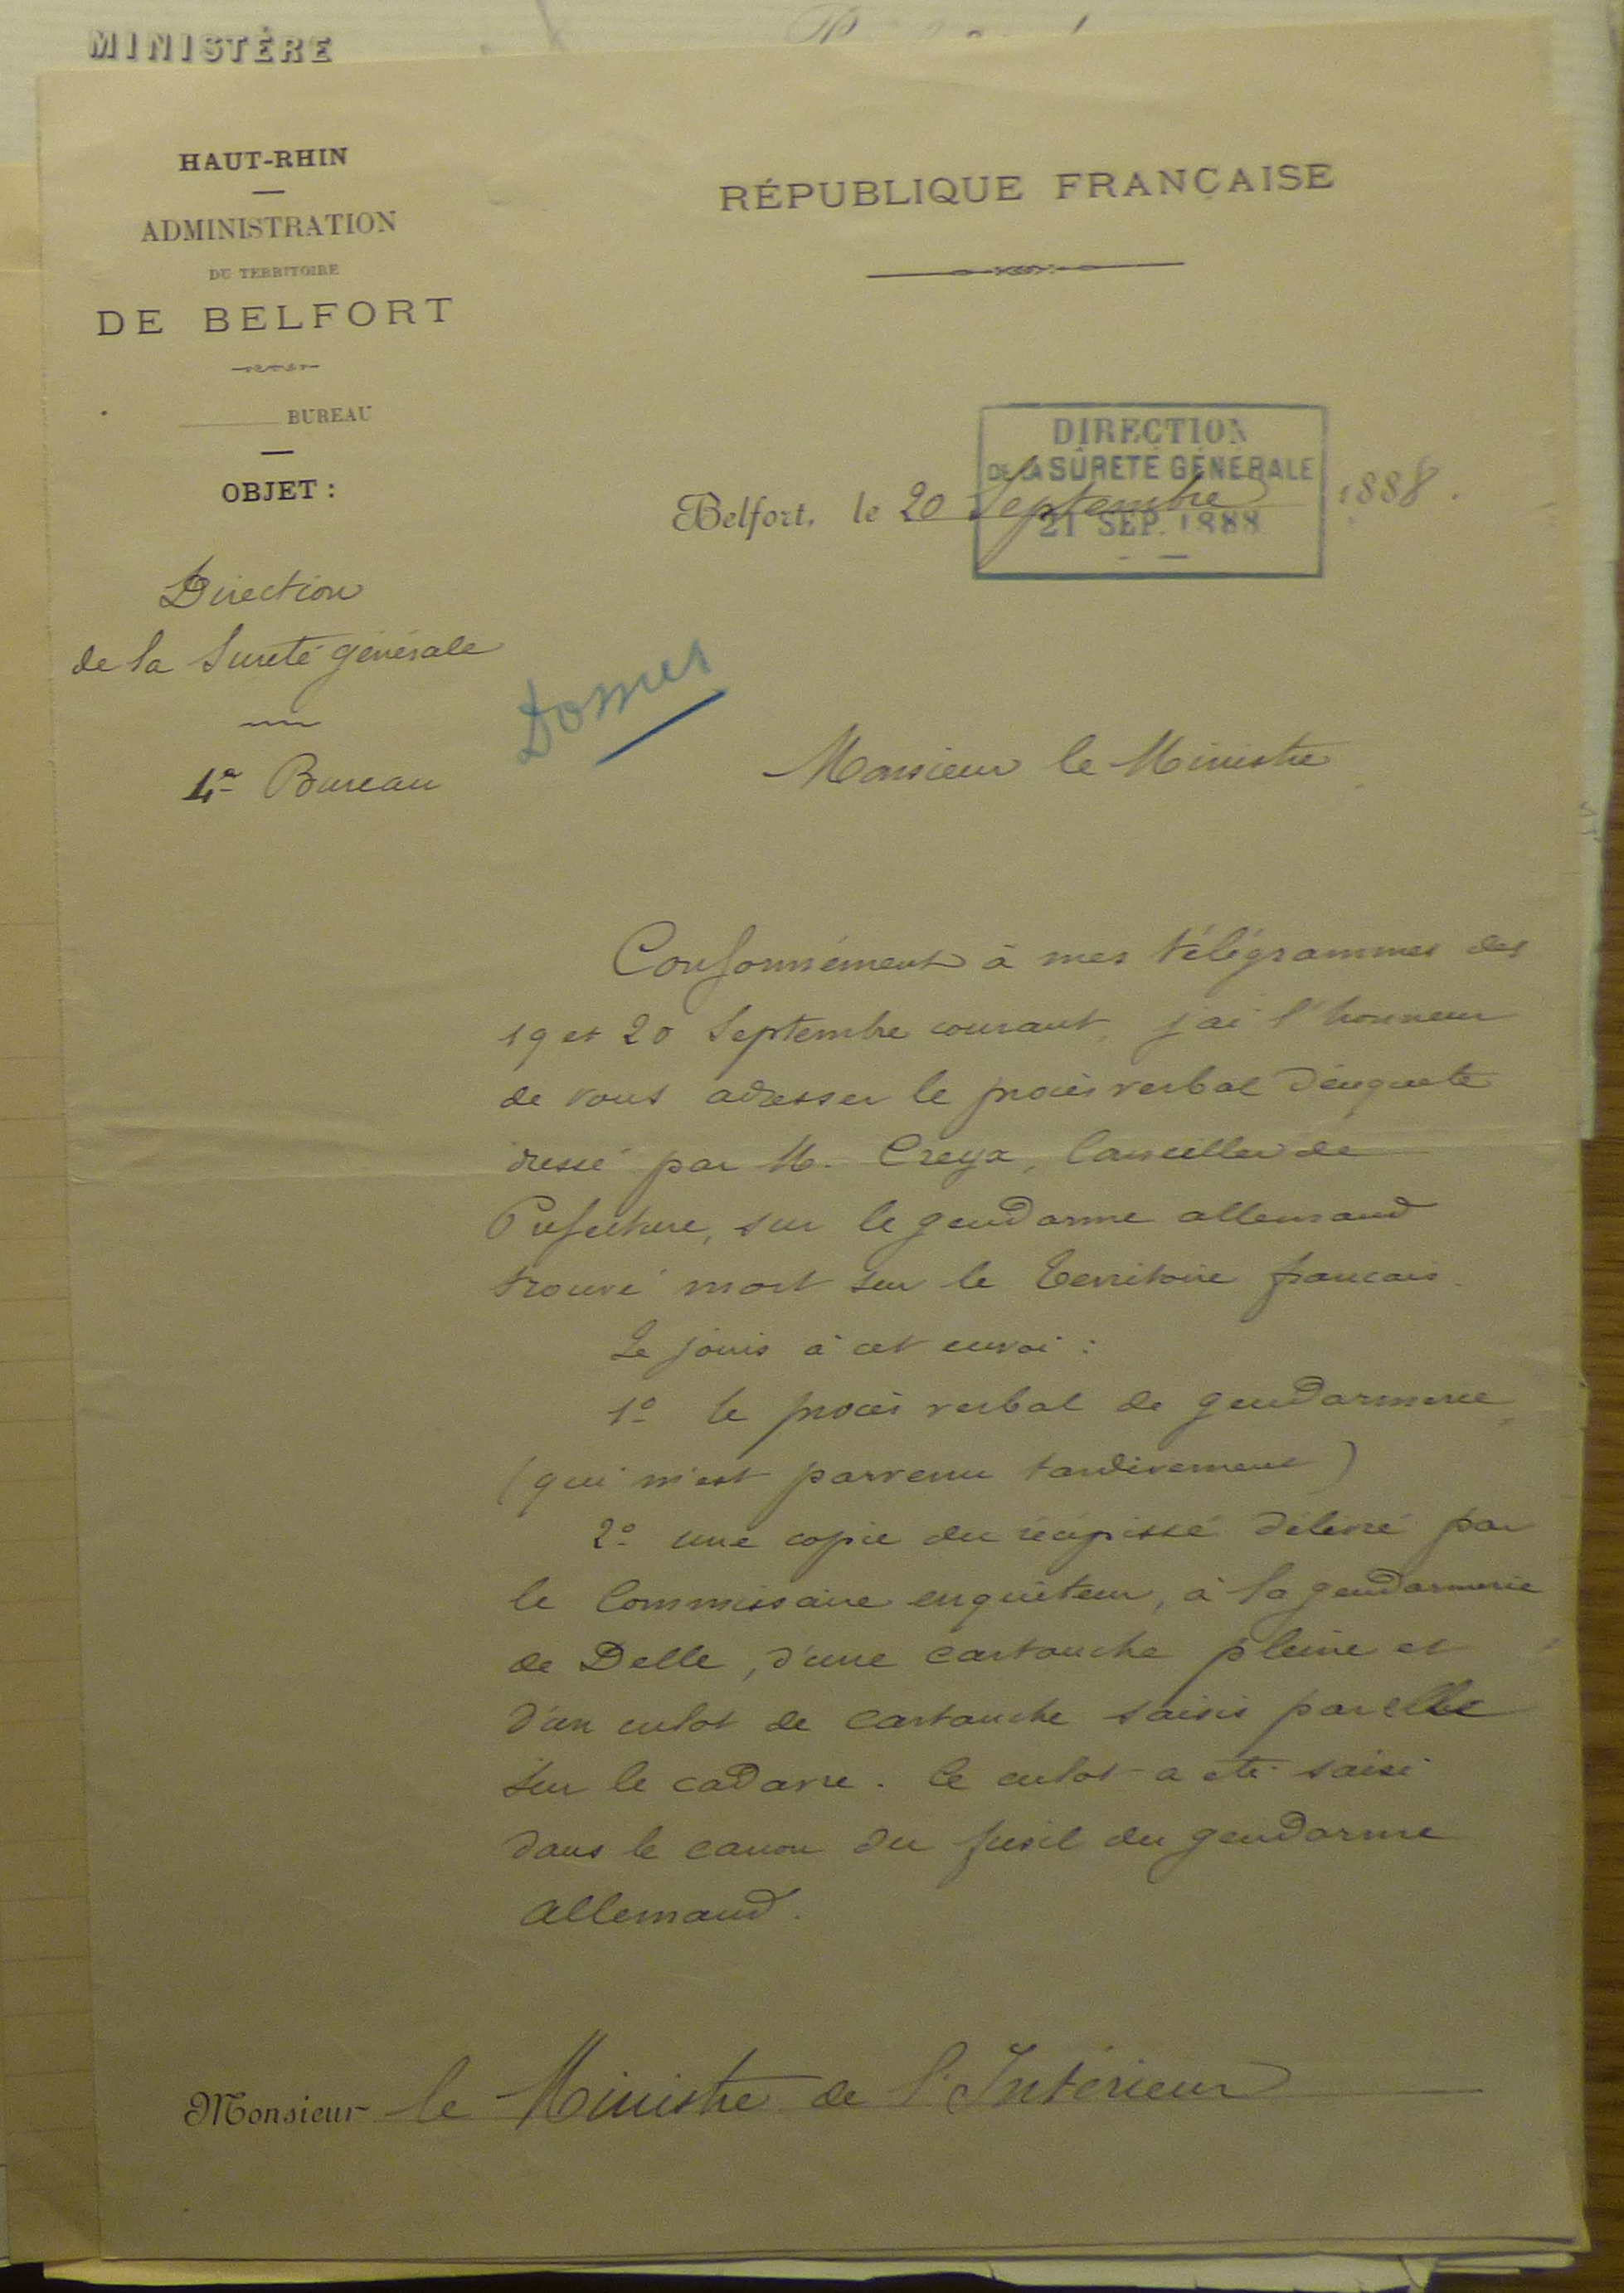 MINISTÈRE
HAUT-RHIN
ADMINISTRATION
DU TERRITOIRE
DE BELFORT
BUREAU
OBJET :
Direction
de la Sureté générale
1er Bureau
RÉPUBLIQUE FRANÇAISE
DIRECTION
DE LA SÛRETÉ GÉNÉRALE
21 SEP. 1888
Belfort, le 20 Septembre 1888.
Monsieur le Ministre
Conformément à mes télégrammes des
19 et 20 Septembre courant, j'ai l'honneur
de vous adresser le procès verbal d'enquete
dressé par M. Conseiller de
Préfecture, sur le gendarme allemand
trouvé mort sur le territoire français.
Je joins à cet envoi :
1º le procès verbal de gendarmerie
(qui m'est parvenu tardivement)
2º une copie du récépissé délivré par
le Commissaire enquêteur, à la gendarmerie
de Delle, d'une cartouche pleine et
d'un culot de cartouche saisis par elle
sur le cadavre. Ce culot a été saisi
dans le canon du fusil du gendarme
allemand.
Monsieur le Ministre de l'Intérieur